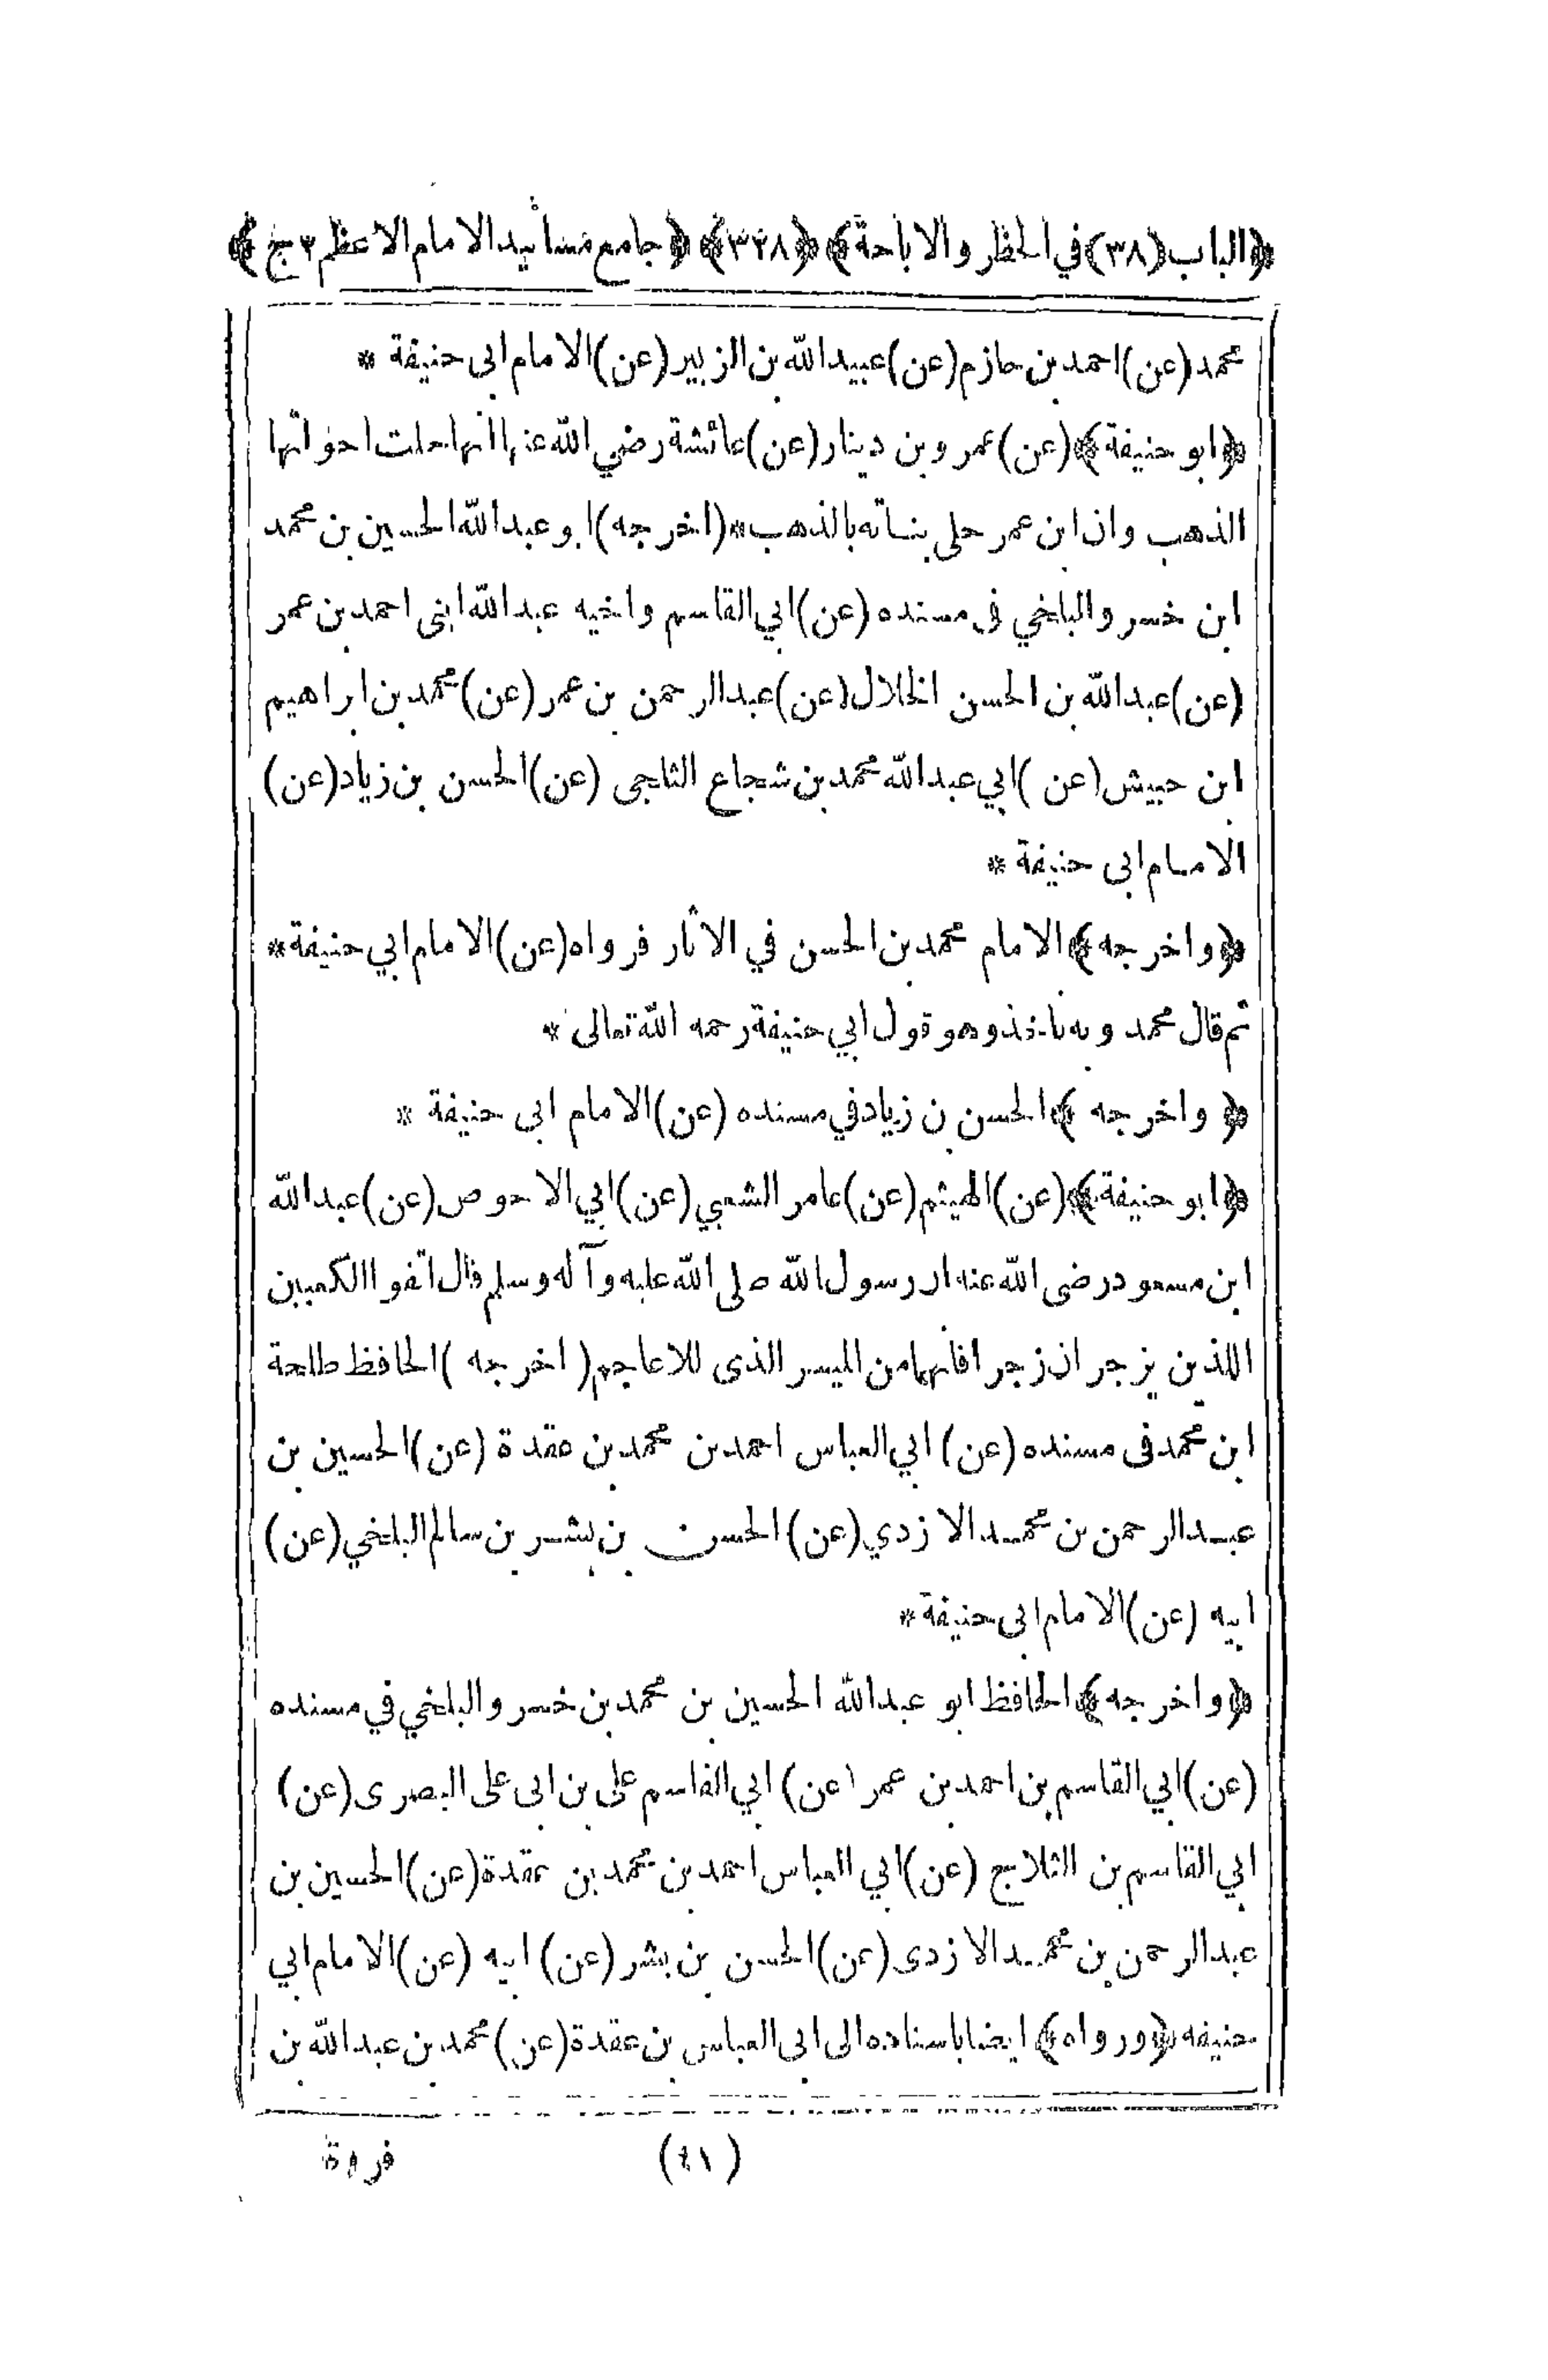 ﴿الباب (٣٨) في الحظر والاباحة﴾ ﴿٣٢٨﴾ ﴿جامع مسانيد الامام الاعظم ٢ ج﴾
محمد (عن) احمد بن حازم (عن) عبيد الله بن الزبير (عن) الامام ابى حنيفة *
﴿ابو حنيفة﴾ (عن) عمرو بن دينار (عن) عائشة رضي الله عنها انها حلت اخواتها
الذهب وان ابن عمر حلى بناته بالذهب * (اخرجه) ابو عبد الله الحسين بن محمد
ابن خسرو البلخي فى مسنده (عن) ابي القاسم واخيه عبد الله ابنى احمد بن عمر
(عن) عبد الله بن الحسن الخلال (عن) عبد الرحمن بن عمر (عن) محمد بن ابراهيم
ابن حبيش (عن) ابي عبد الله محمد بن شجاع الثلجى (عن) الحسن بن زياد (عن)
الامام ابى حنيفة *
﴿واخرجه﴾ الامام محمد بن الحسن في الاثار فرواه (عن) الامام ابي حنيفة *
ثم قال محمد وبه ناخذ وهو قول ابي حنيفة رحمه الله تعالى *
﴿واخرجه﴾ الحسن بن زياد في مسنده (عن) الامام ابى حنيفة *
﴿ابو حنيفة﴾ (عن) الهيثم (عن) عامر الشعبي (عن) ابي الاحوص (عن) عبد الله
ابن مسعود رضى الله عنه ان رسول الله صلى الله عليه وآله وسلم قال اتقوا الكعبين
اللذين يزجران زجرا فانهما من الميسر الذى للاعاجم (اخرجه) الحافظ طلحة
ابن محمد فى مسنده (عن) ابي العباس احمد بن محمد بن عقدة (عن) الحسين بن
عبد الرحمن بن محمد الازدي (عن) الحسن بن بشر بن سالم البلخي (عن)
ابيه (عن) الامام ابى حنيفة *
﴿واخرجه﴾ الحافظ ابو عبد الله الحسين بن محمد بن خسرو البلخي في مسنده
(عن) ابي القاسم بن احمد بن عمر (عن) ابي القاسم على بن ابى على البصرى (عن)
ابي القاسم بن الثلاج (عن) ابي العباس احمد بن محمد بن عقدة (عن) الحسين بن
عبد الرحمن بن محمد الازدى (عن) الحسن بن بشر (عن) ابيه (عن) الامام ابي
حنيفه ﴿ورواه﴾ ايضا باسناده الى ابى العباس بن عقدة (عن) محمد بن عبد الله بن
(٤١) فروة